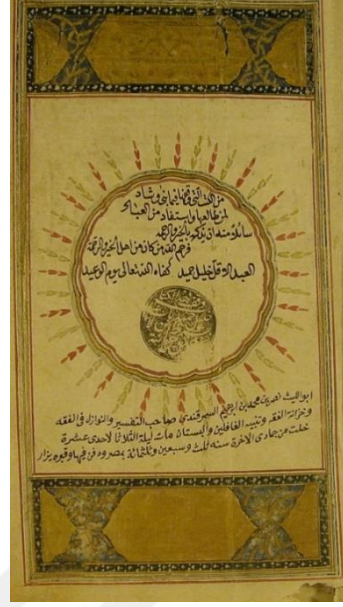 من الكتب التي وقفها
لمن طالعها واستفاد من العباد
سائلا منه ان يذكره بالخير والرحمة
فرحم الله من كان من اهل الخير والرحمة
العبد الاقل خليل حميد كفاه الله تعالى يوم الوعيد
ابو الليث نصر بن محمد بن ابرهيم السمرقندي صاحب التفسير والنوازل في الفقه
وخزانة الفقه وتنبيه الغافلين والبستان مات ليلة الثلاثا لاحدى عشرة
خلت من جمادى الاخرة سنه ثلث وسبعين وثلثمائة ودفن فيها وقبره يزار